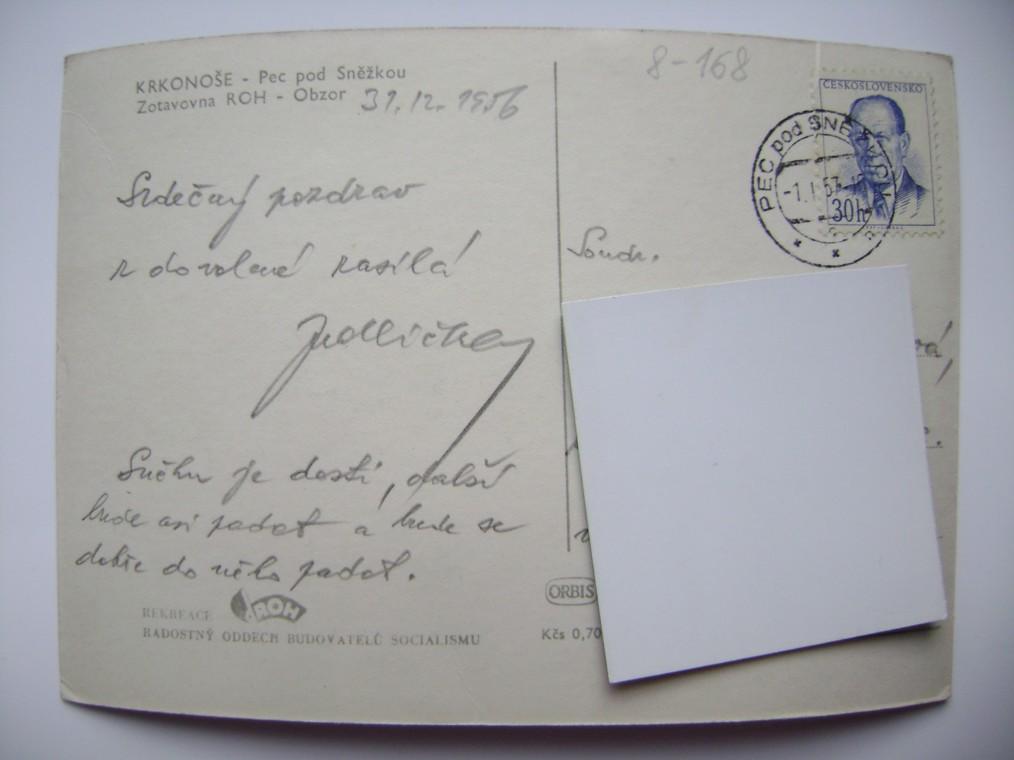 KRKONOŠE - Pec pod Sněžkou
Zotavovna ROH - Obzor 31.12.1956
8-168
ČESKOSLOVENSKO
30h
PEC pod SNĚŽKOU
-1.I.57.-1
Srdečný pozdrav
z dovolené zasílá
Jedlička
Soudr.
vá,
Sněhu je dosti, další
bude asi padat a bude se
dobře do něho padat.
REKREACE ROH
RADOSTNÝ ODDECH BUDOVATELŮ SOCIALISMU
ORBIS
Kčs 0,70